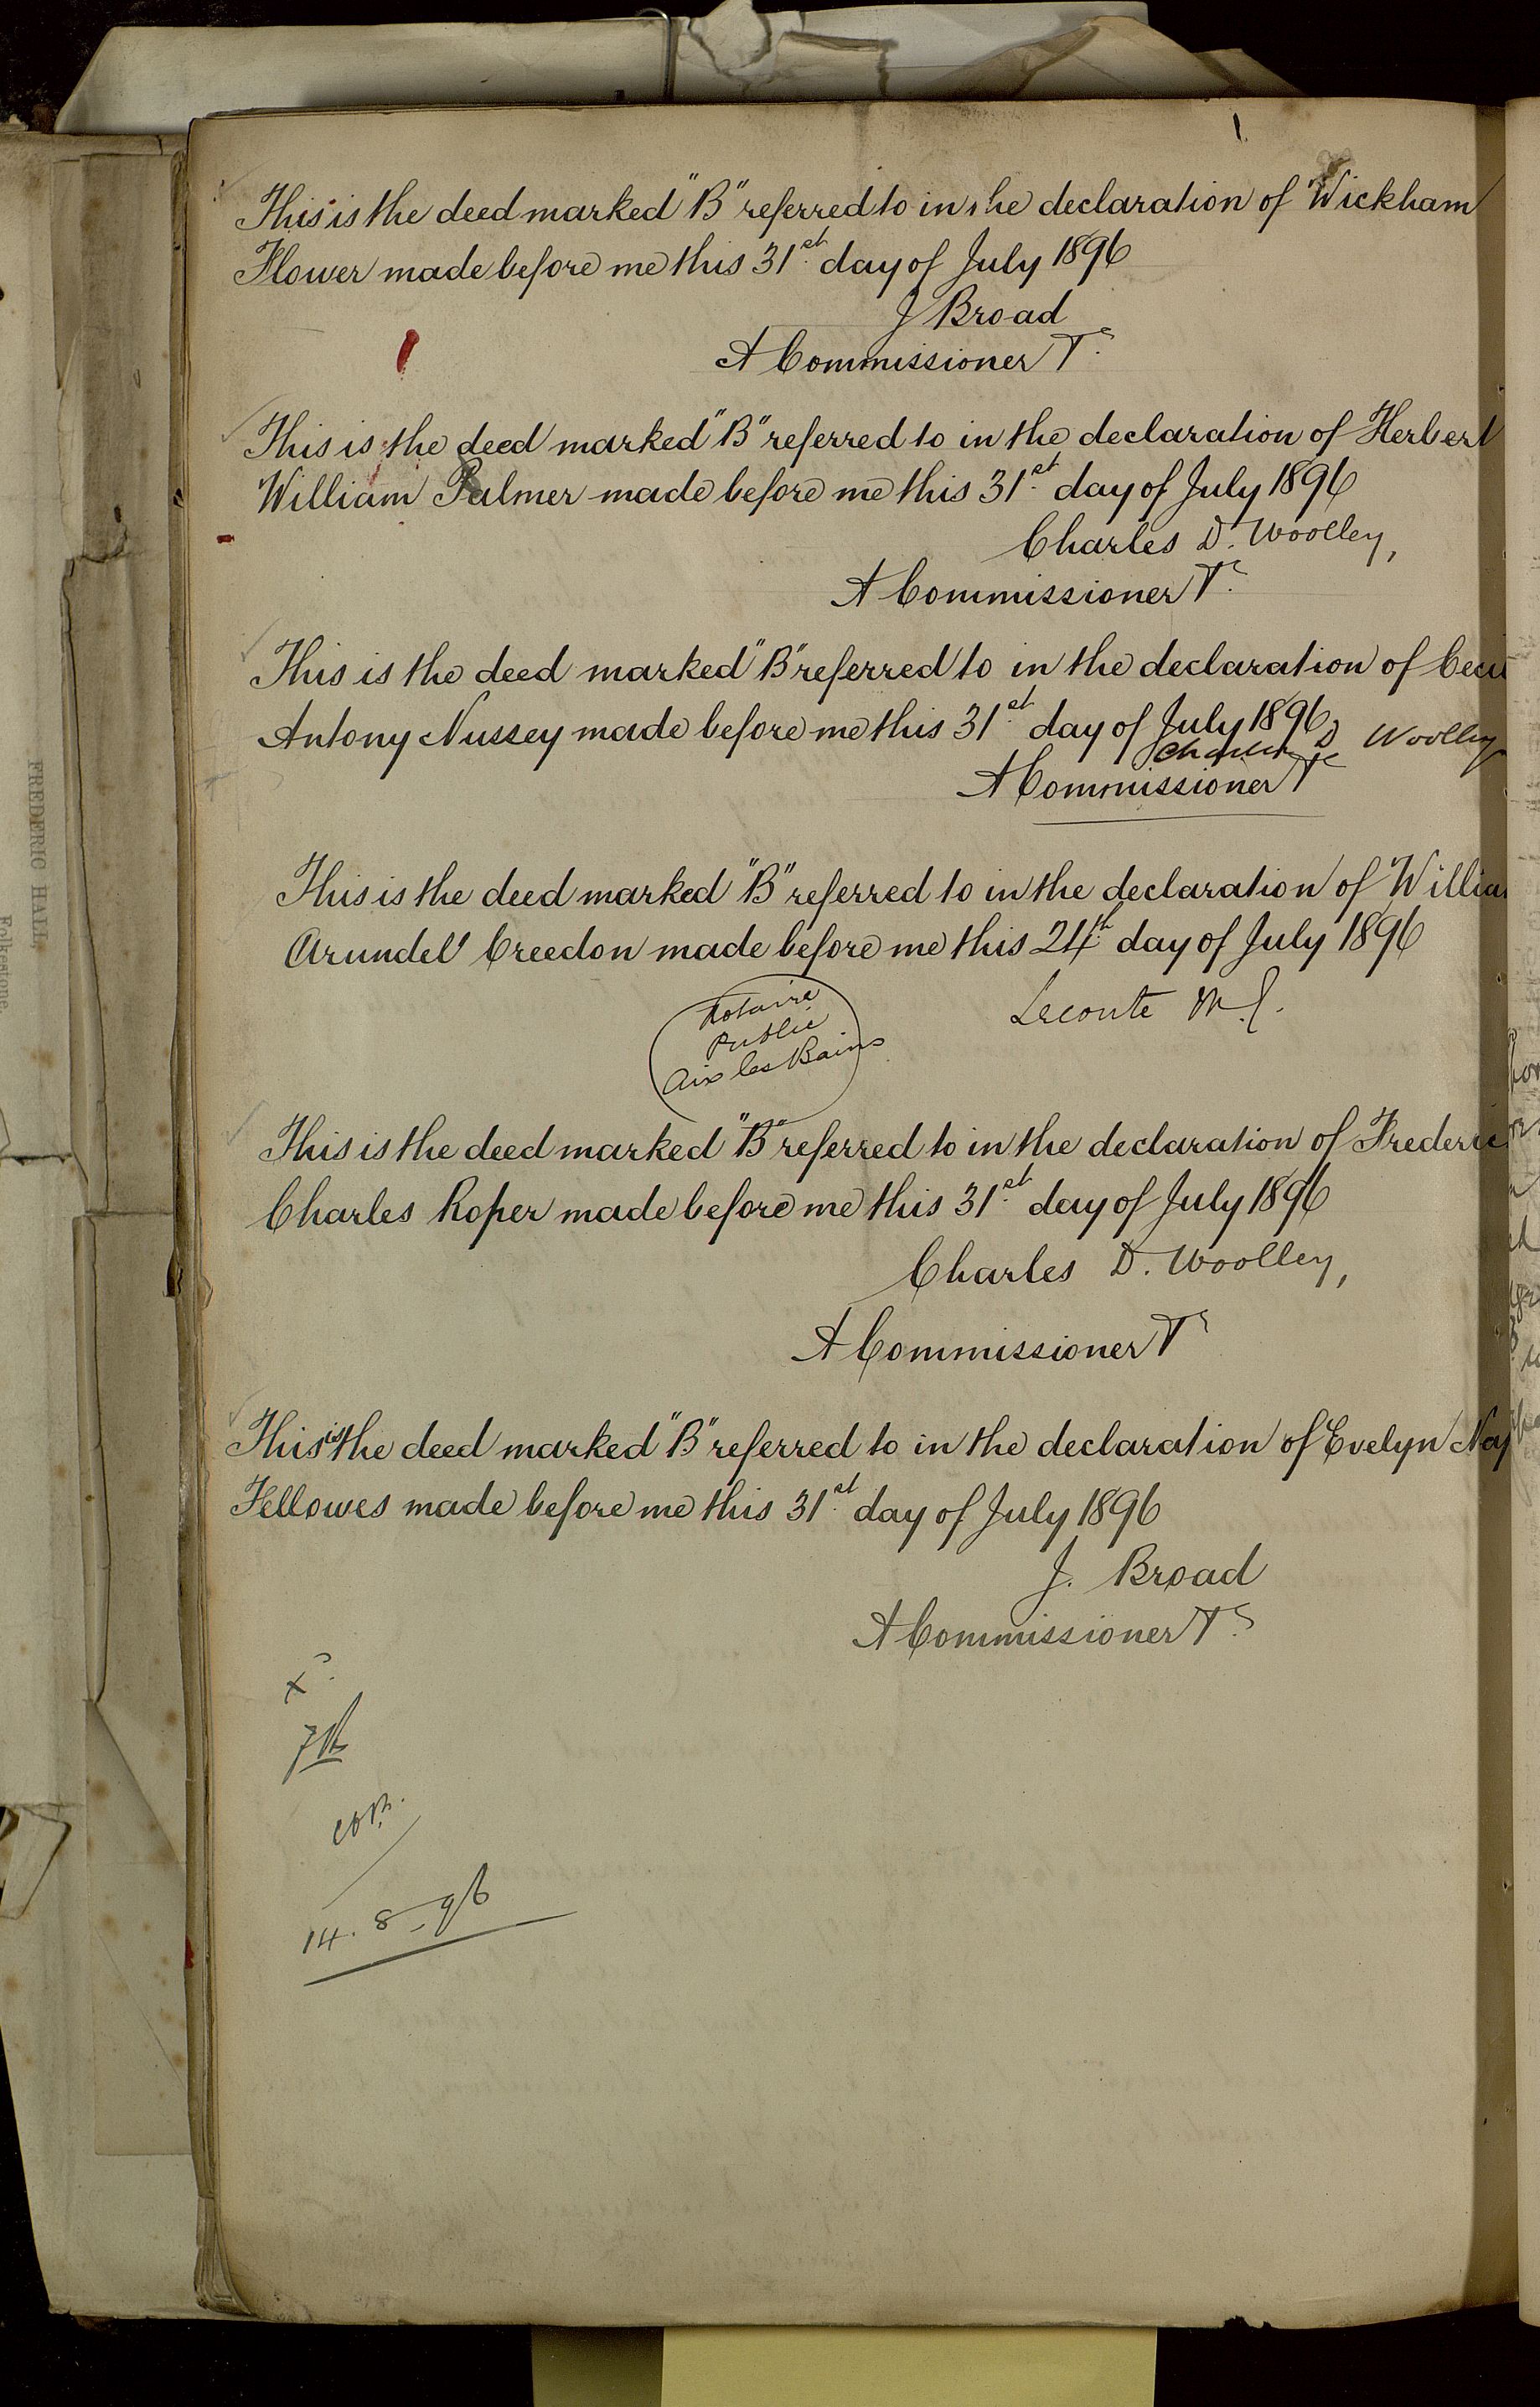 This is the deed marked "B" referred to in the declaration of Wickham
Flower made before me this 31st day of July 1896
J Broad
A Commissioner &c.
This is the deed marked "B" referred to in the declaration of Herbert
William Palmer made before me this 31st day of July 1896
Charles D. Woolley,
A Commissioner &c.
This is the deed marked "B" referred to in the declaration of Ceci
Antony Nussey made before me this 31st day of July 1896
Charles D Woolley
A Commissioner &c
This is the deed marked "B" referred to in the declaration of Willia
Arundel Creedon made before me this 24th day of July 1896
Leconte
Notaire
Public
Aix les Bains
This is the deed marked "B" referred to in the declaration of Frederic
Charles Roper made before me this 31st day of July 1896
Charles D. Woolley,
A Commissioner &c
This is the deed marked "B" referred to in the declaration of Evelyn Nap
Fellowes made before me this 31st day of July 1896
J. Broad
A Commissioner &c.
14. 8-96
FREDERIC HALL,
Folkestone.